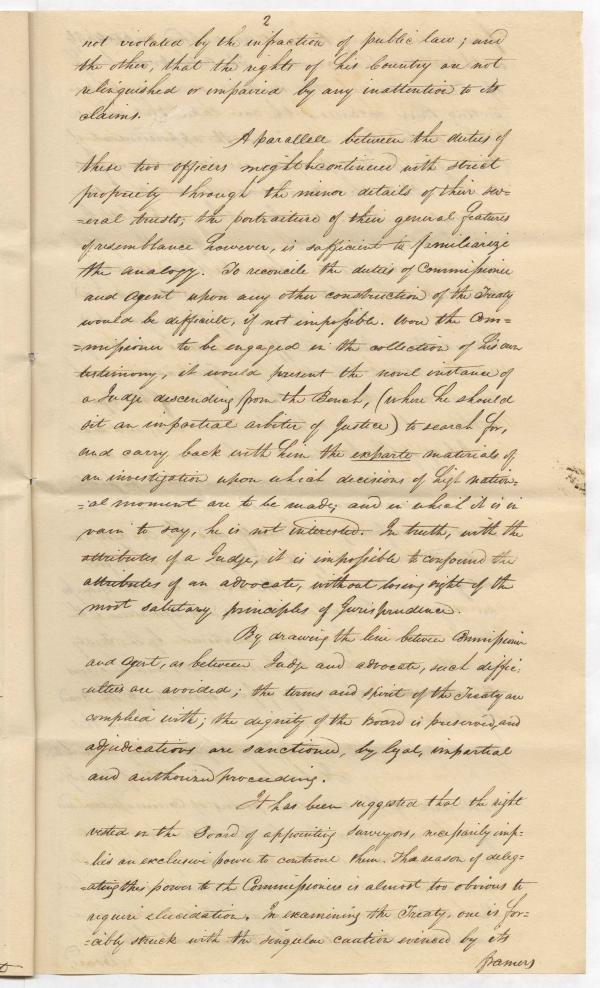 2
not violated by the infraction of public law; and
the other, that the rights of his Country are not
relinquished or impaired by any inattention to its
claims.
A parallel between the duties of
these two officers might be continued with strict
propriety through the minor details of their sev=
=eral trusts; the portraiture of their general features
of resemblance however, is sufficient to familiarize
the analogy. To reconcile the duties of Commissioner
and Agent upon any other construction of the Treaty
would be difficult, if not impossible. Were the Com=
=missioner to be engaged in the collection of his own
testimony, it would present the novel instance of
a Judge descending from the Bench, (where he should
sit an impartial arbiter of Justice) to search for,
and carry back with him the exparte materials of
an investigation upon which decisions of high nation=
=al moment are to be made; and in which it is in
vain to say, he is not interested. In truth, with the
attributes of a Judge, it is impossible to confound the
attributes of an advocate, without losing sight of the
most salutary principles of Jurisprudence.
By drawing the line between Commissioner
and Agent, as between Judge and advocate, such diffic:
ulties are avoided; the terms and spirit of the Treaty are
complied with; the dignity of the Board is preserved, and
adjudications are sanctioned, by legal, impartial
and authorized proceeding.
It has been suggested that the right
vested in the Board of appointing surveyors, necessarily imp=
=lies an exclusive power to controul them. The reason of deleg=
=ating this power to the Commissioners is almost too obvious to
require elucidation. In examining the Treaty, one is for=
=cibly struck with the singular caution evinced by its
framers